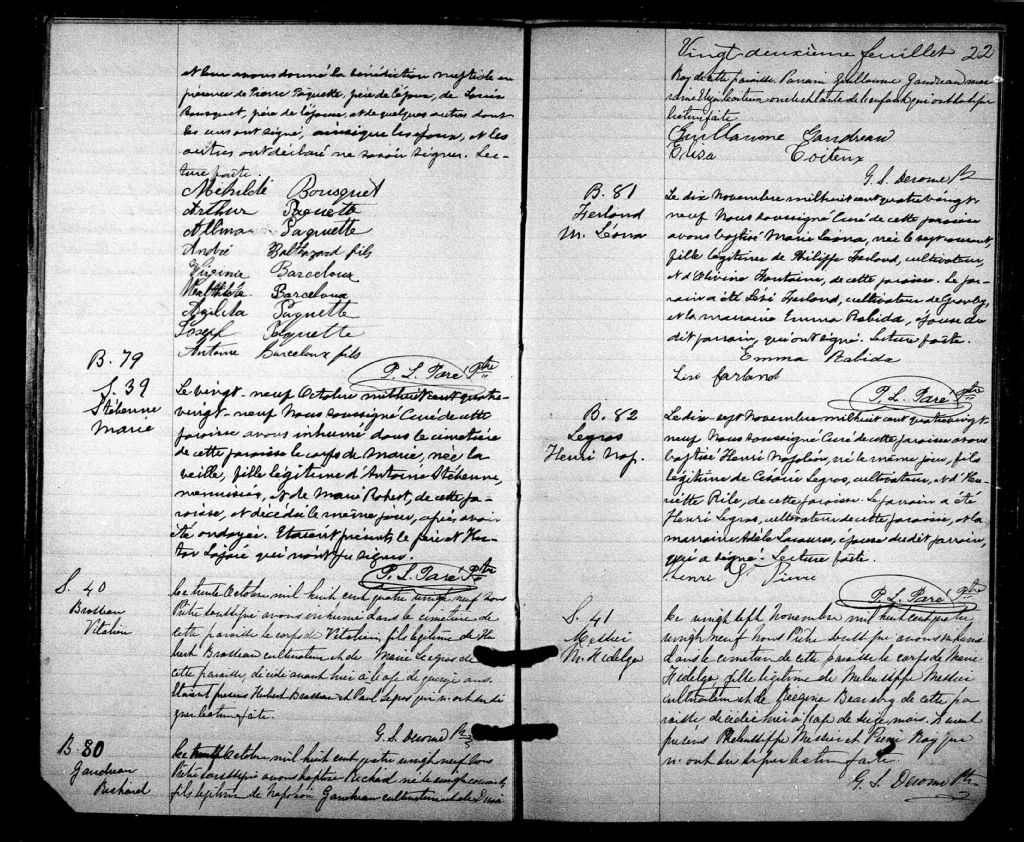 et leur avons donné la bénédiction nuptiale en
présence de Pierre Paquette, père de l'époux, de Louis
Bousquet, père de l'épouse, et de quelques autres dont
les uns ont signé, ainsi que les époux, et les
autres ont déclaré ne savoir signer. Lec-
ture faite.
Methilde Bousquet
Arthur Paquette
Allma Paquette
André Balthazard fils
Virginie Barceloux
Mathilde Barceloux
Agilita Paquette
Joseph Paquette
Antoine Barceloux fils
P. L. Paré Ptre
B. 79
S. 39
Stébenne
Marie
Le vingt-neuf Octobre mil huit cent quatre-
vingt-neuf Nous soussigné Curé de cette
paroisse avons inhumé dans le cimetière
de cette paroisse le corps de Marie, née la
veille, fille légitime d'Antoine Stébenne,
menuisier, et de Marie Robert, de cette pa-
roisse, et décédée le même jour, après avoir
été ondoyée. Etaient présents le père et Hec-
tor Lajoie qui n'ont pu signer.
P. L. Paré Ptre
S. 40
Brosseau
Vitalien
Le trente Octobre mil huit cent quatre vingt neuf nous
Prêtre soussigné avons inhumé dans le cimetière de
cette paroisse le corps de Vitalien, fils légitime de Hu-
bert Brosseau cultivateur et de Marie Legros de
cette paroisse, décédé avant hier à l'age de quinze ans.
Etaient présens Hubert Brosseau et Paul qui n'ont su si-
gner lecture faite.
G. S. Derome Ptre
B. 80
Gaudreau
Richard
Le trente Octobre mil huit cent quatre vingt neuf nous
Prêtre soussigné avons baptisé Richard né le vingt courant,
fils légitime de Napoléon Gaudreau cultivateur et de
Vingt-deuxième feuillet 22
Roy de cette paroisse. Parrain Guillaume Gaudreau mar-
raine Eliza Coiteux oncle et tante de l'enfant qui ont signé
lecture faite
Guillaume Gaudreau
Elisa Coiteux
G. S. Derome Ptre
B. 81
Ferland
M. Léona
Le dix Novembre mil huit cent quatre vingt
neuf Nous soussigné Curé de cette paroisse
avons baptisé Marie Léona, née le sept courant,
fille légitime de Philippe Ferland, cultivateur,
et d'Olivine Fontaine, de cette paroisse. Le par-
rain a été Lévi Ferland, cultivateur de Granby,
et la marraine Emma Rabida, épouse du
dit parrain, qui ont signé. Lecture faite.
Emma Rabida
Levi Farland
P. L. Paré Ptre
B. 82
Legros
Henri Nap.
Le dix sept Novembre mil huit cent quatre vingt
neuf Nous soussigné Curé de cette paroisse avons
baptisé Henri Napoléon, né le même jour, fils
légitime de Césaire Legros, cultivateur, et d'Hen-
riette Rile, de cette paroisse. Le parrain a été
Henri Legros, cultivateur de cette paroisse, et la
marraine Adèle épouse du dit parrain,
qui a signé. Lecture faite.
Henri St Pierre
P. L. Paré Ptre
S. 41
Messier
M. Hidelge
Le vingt sept Novembre mil huit cent quatre
vingt neuf Nous Prêtre soussigné avons inhumé
dans le cimetière de cette paroisse le corps de Marie
Hidelge fille légitime de Messier
cultivateur et de Regina Beaudry de cette pa-
roisse décédée hier à l'age de seize mois. Etaient
présens Messier et Pierre Roy qui
n'ont su signer lecture faite.
G. S. Derome Ptre